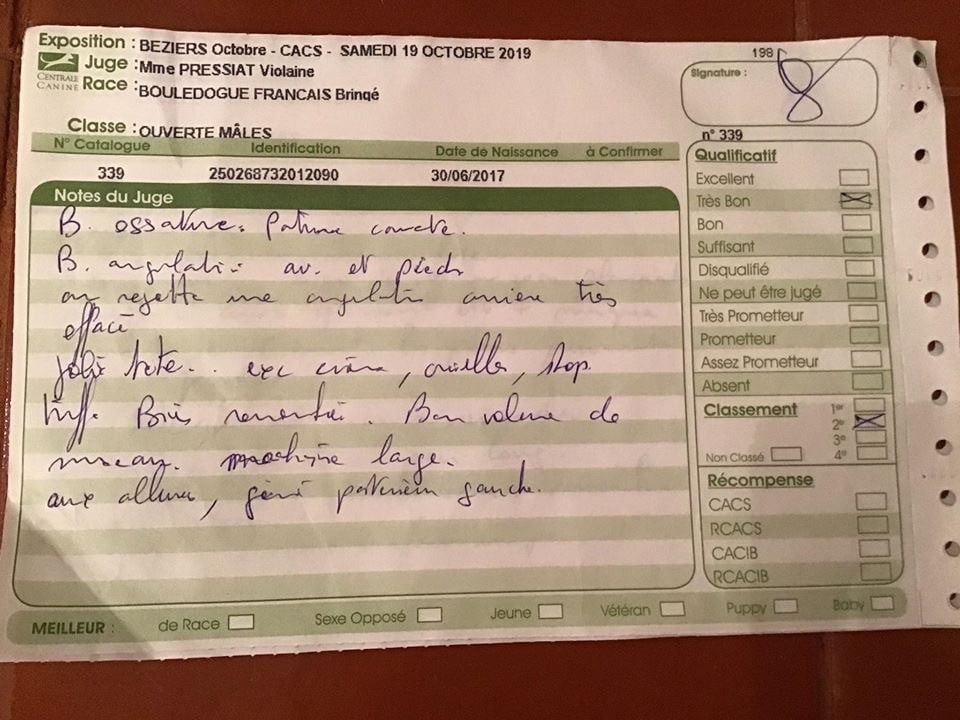 Exposition : BEZIERS Octobre - CACS - SAMEDI 19 OCTOBRE 2019
CENTRALE CANINE
Juge : Mme PRESSIAT Violaine
Race : BOULEDOGUE FRANCAIS Bringé
Classe : OUVERTE MÂLES
198
Signature :
N° Catalogue Identification Date de Naissance à Confirmer
339 250268732012090 30/06/2017
n° 339
Notes du Juge
B. ossature. Poitrine
B. angulation av. et pieds
on regrette une angulation arriere très
effacé
Jolie tete.. exc crâne, oreilles, stop.
truffe Bien remontée. Bon volume de
museau. machoire large.
aux allures, géné postérieur gauche.
Qualificatif
Excellent
Très Bon
Bon
Suffisant
Disqualifié
Ne peut être jugé
Très Prometteur
Prometteur
Assez Prometteur
Absent
Classement 1er
2e
3e
Non Classé 4e
Récompense
CACS
RCACS
CACIB
RCACIB
MEILLEUR : de Race Sexe Opposé Jeune Vétéran Puppy Baby